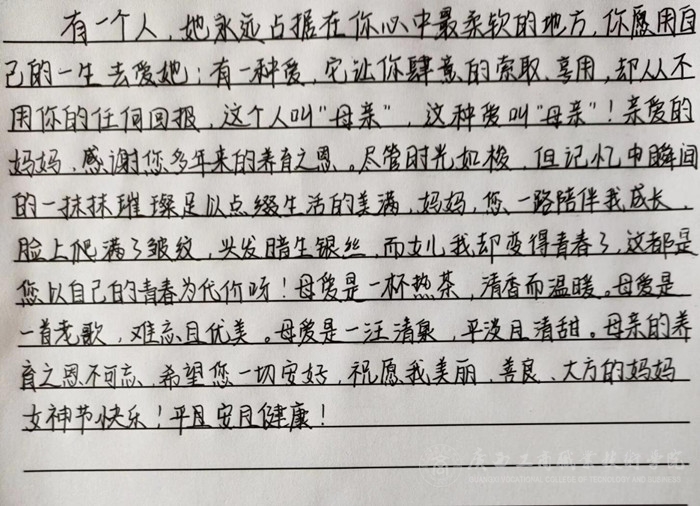 有一个人，她永远占据在你心中最柔软的地方，你愿用自
己的一生去爱她；有一种爱，它让你肆意的索取、享用，却从不
用你的任何回报，这个人叫“母亲”，这种爱叫“母亲”！亲爱的
妈妈，感谢您多年来的养育之恩。尽管时光如梭，但记忆中瞬间
的一抹抹璀璨足以点缀生活的美满，妈妈，您一路陪伴我成长，
脸上爬满了皱纹，头发暗生银丝，而女儿我却变得青春了，这都是
您以自己的青春为代价呀！母爱是一杯热茶，清香而温暖。母爱是
一首老歌，难忘且优美。母爱是一汪清泉，平淡且清甜。母亲的养
育之恩不可忘，希望您一切安好，祝愿我美丽、善良、大方的妈妈
女神节快乐！平且安且健康！
广西工商职业技术学院
GUANGXI VOCATIONAL COLLEGE OF TECHNOLOGY AND BUSINESS